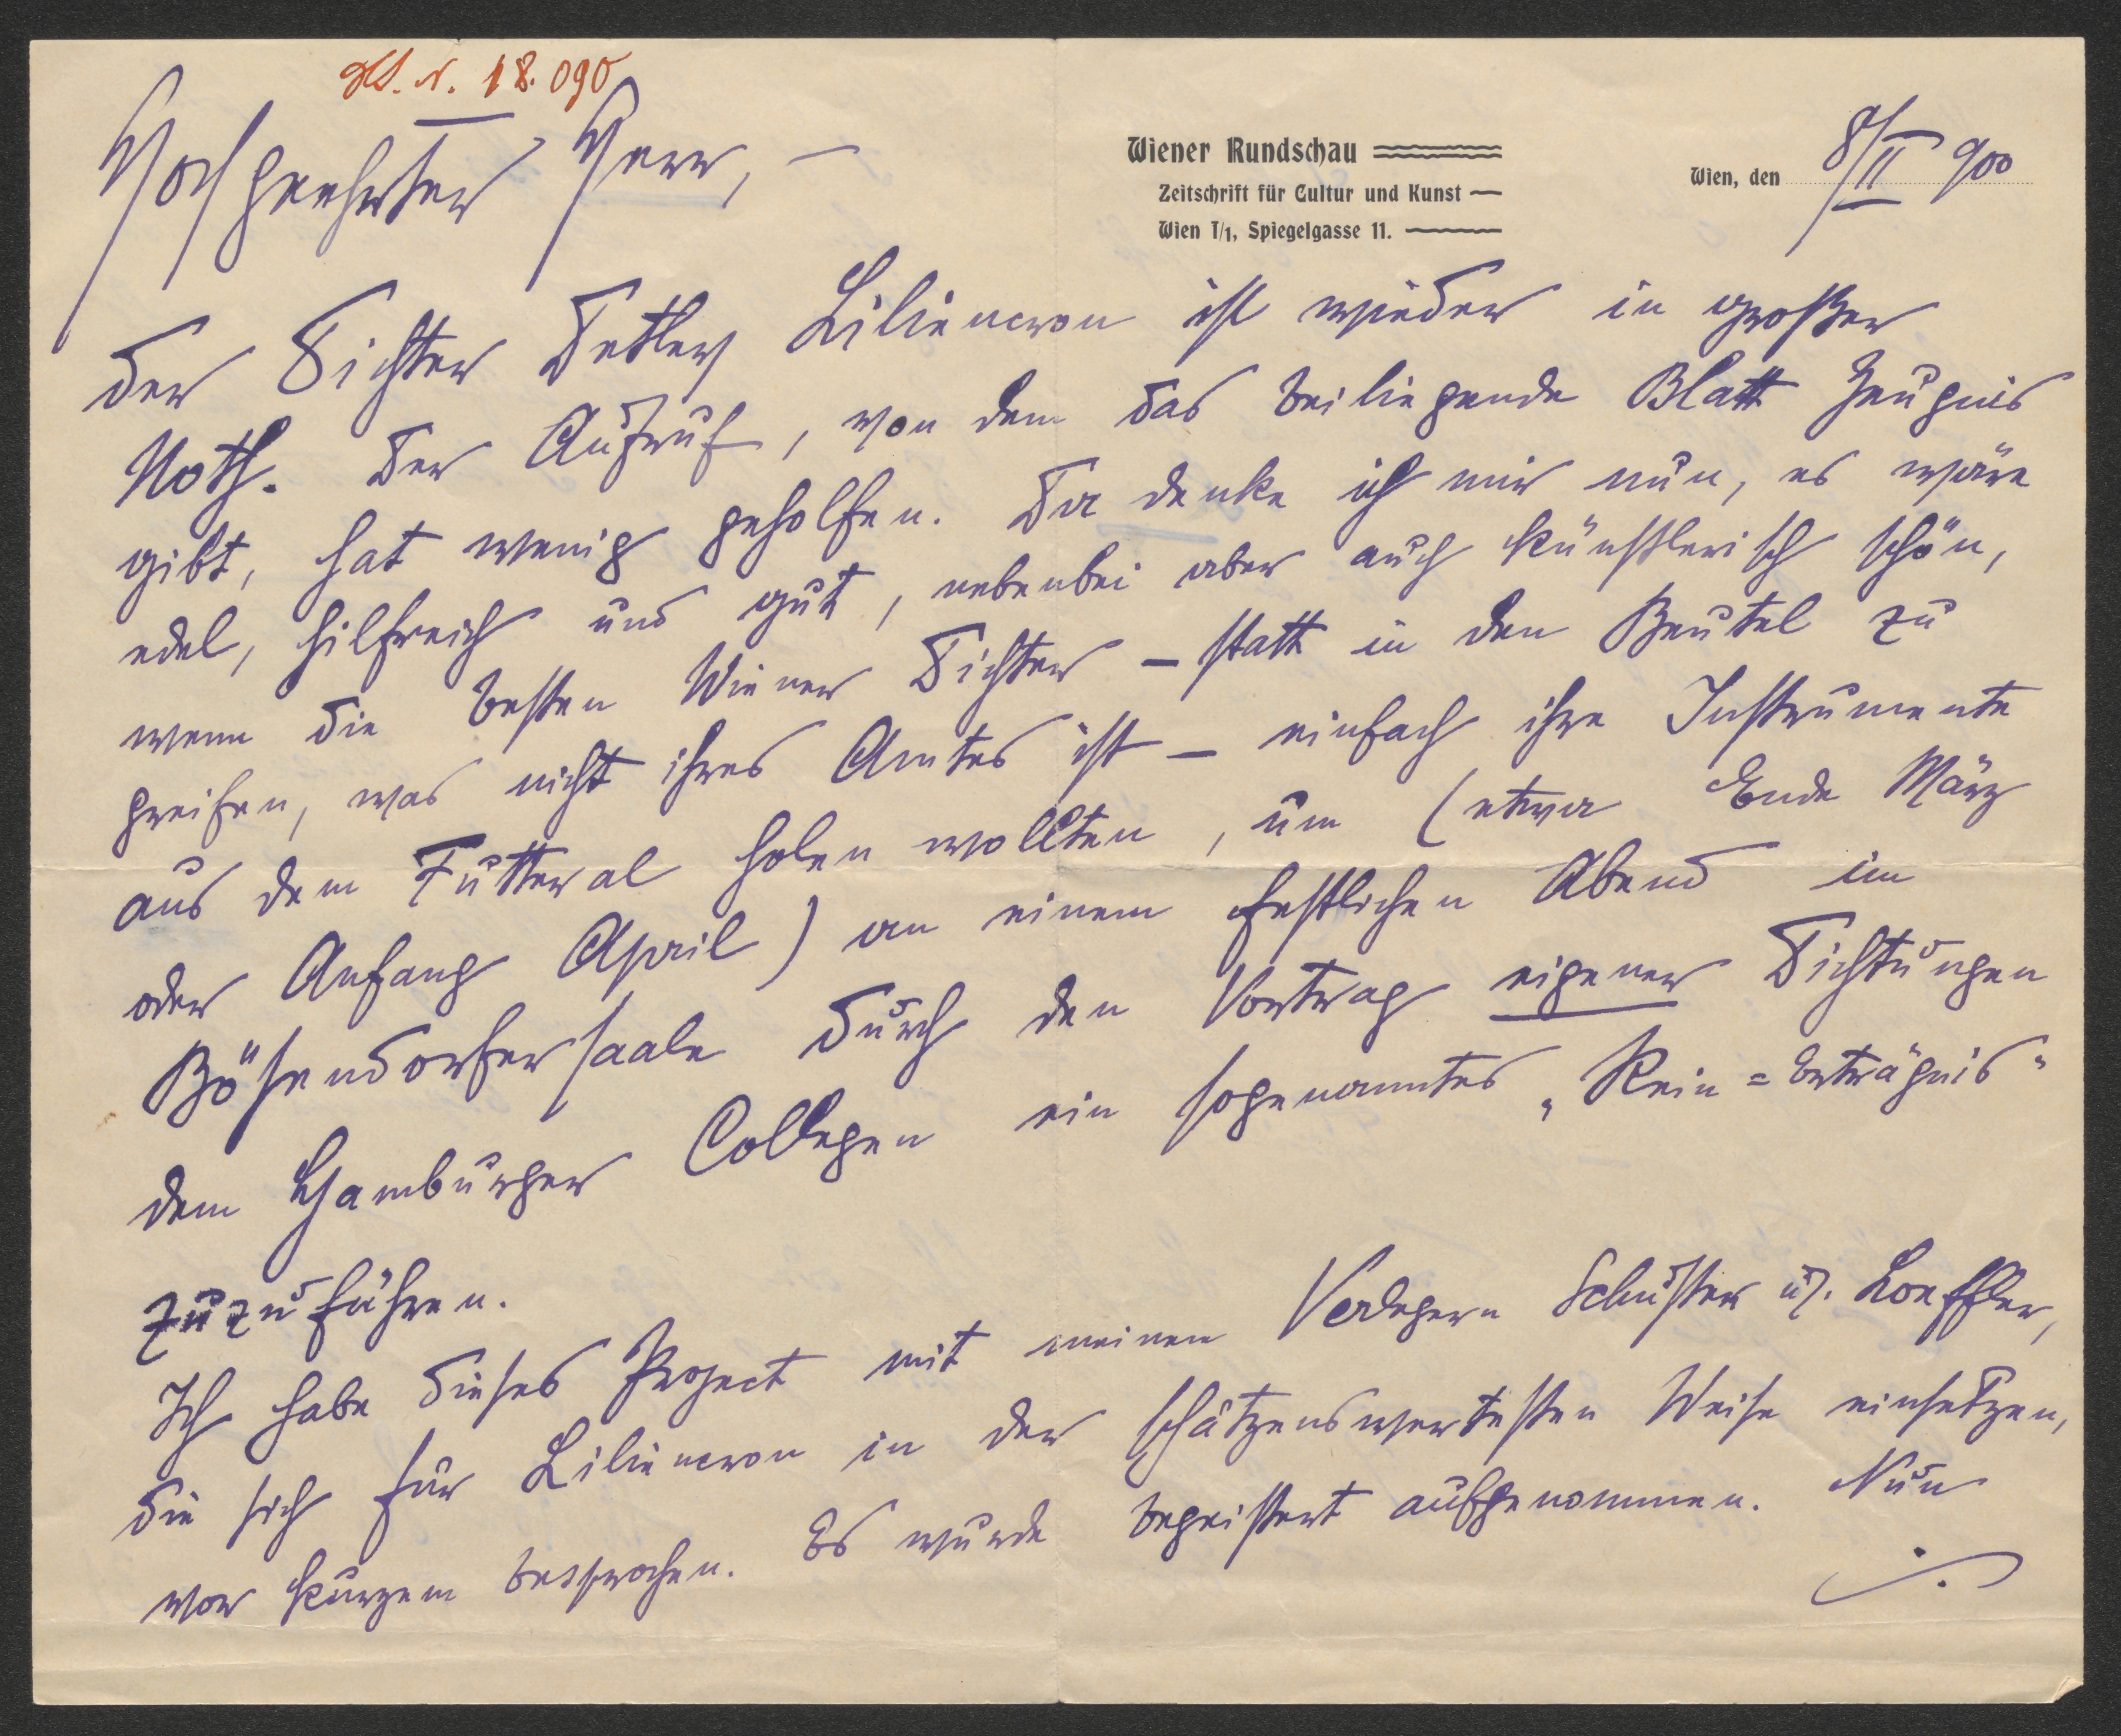 18.090
Wiener Rundschau
Zeitschrift für Cultur und Kunst
Wien I/1, Spiegelgasse 11.
Wien, den 8/II 900
Hochgeehrter Herr, –
der Dichter Detlev Liliencron ist wieder in großer
Noth. Der Aufruf, von dem das beiliegende Blatt Zeugnis
gibt, hat wenig geholfen. Da denke ich mir nun, es wäre
edel, hilfreich und gut, nebenbei aber auch künstlerisch schön,
wenn die besten Wiener Dichter – statt in den Beutel zu
greifen, was nicht ihres Amtes ist – einfach ihre Instrumente
aus dem Futteral holen wollten, um (etwa Ende März
oder Anfang April) an einem festlichen Abend im
Bösendorfersaale durch den Vortrag eigener Dichtungen
dem Hamburger Collegen ein sogenanntes „Rein=Erträgnis"
zuzuführen.
Ich habe dieses Project mit meinen Verlegern Schuster u. Loeffler,
die sich für Liliencron in der schätzenswertesten Weise einsetzen,
vor Kurzem besprochen. Es wurde begeistert aufgenommen. Nun